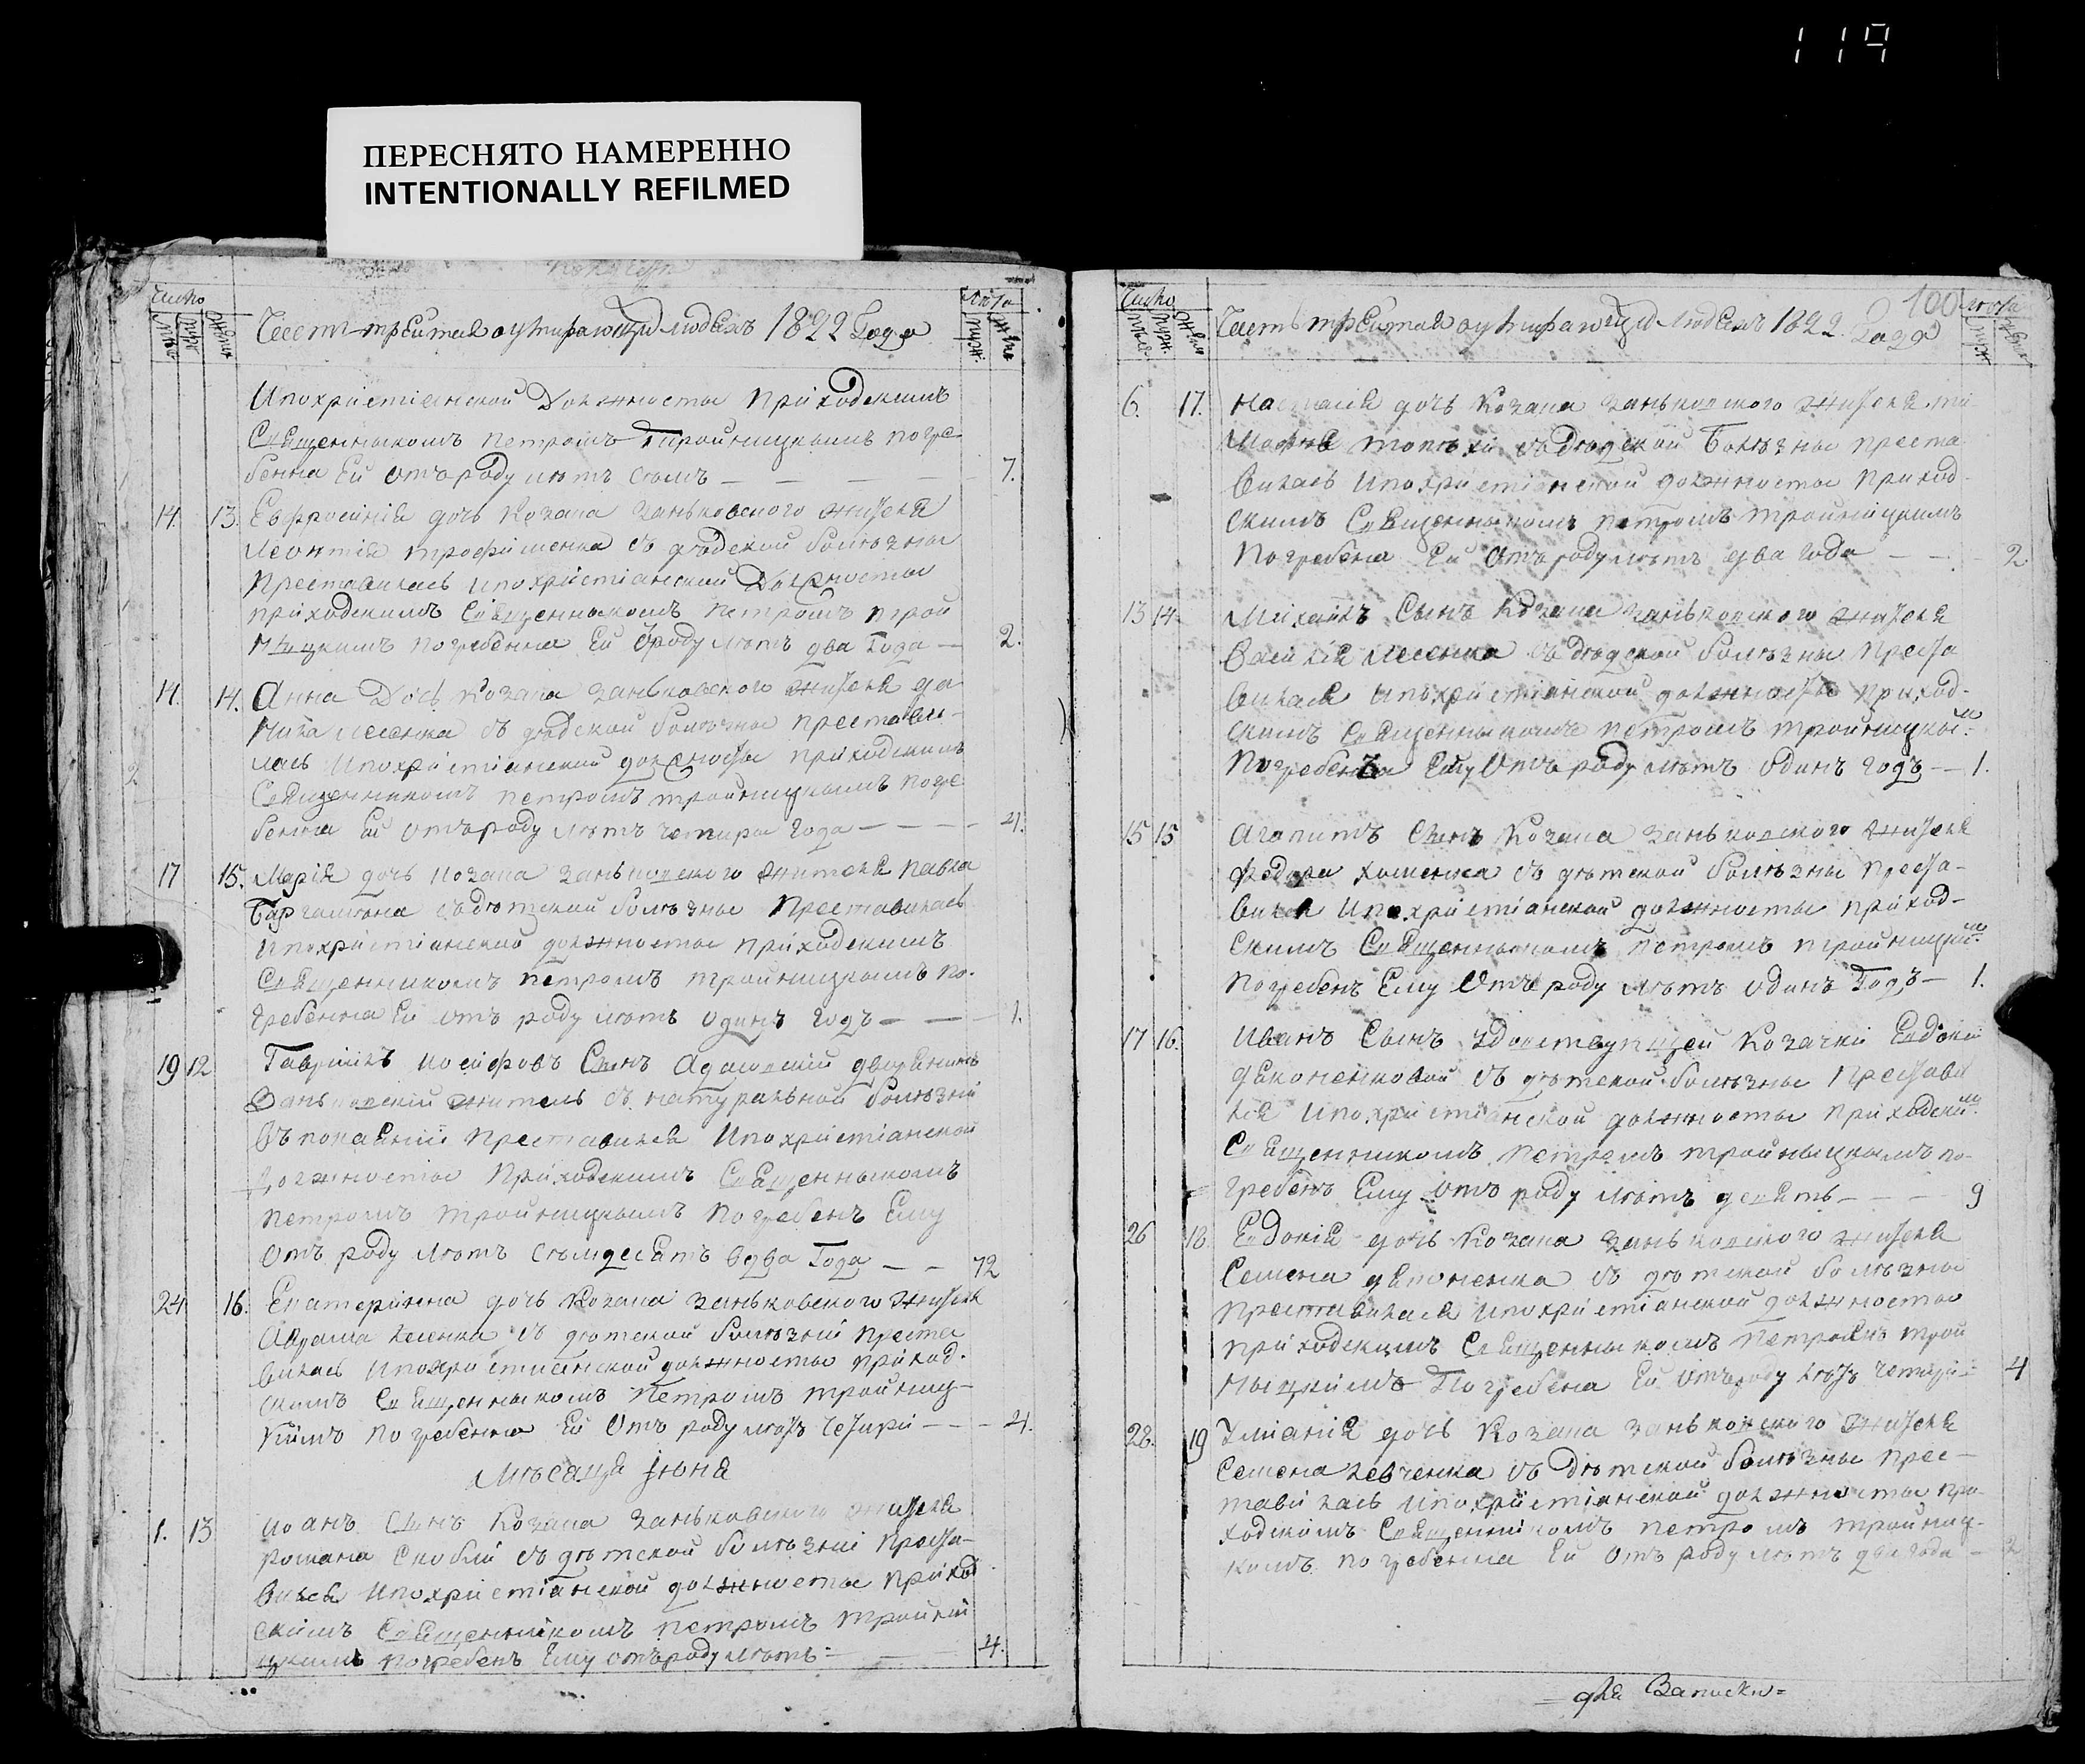 119
ПЕРЕСНЯТО НАМЕРЕННО
INTENTIONALLY REFILMED
Число
Часть третия о умирающи людехъ 1822 Года
Лѣта
Ипохристіянской Должносты приходскимъ
Священныкомъ петромъ Тройницкимъ погре
бенна Ей отъроду лѣтъ семъ — 7.
14. 13. Евфросинія дочь козака заньковского жителя
Леонтія трофименка съ дѣдской болѣзны
преставилась ипохристіанской Должносты
приходскимъ Священныкомъ петромъ трой
ницкимъ погребенна Ей ѿроду лѣтъ два Года — 2.
14. 14. Анна Дочь козака заньковского жителя да
нила лесенка съ дѣдской болѣзны преставы-
лась Ипохристіянской должносты приходскимъ
Священникомъ петромъ тройницкимъ погре
бенна Ей отъроду лѣтъ четыры года — 4.
17 15. Марія дочь козака заньковского жителя павла
съдѣтской болѣзны Преставилась
ипохристіянской должносты приходскимъ
Священникомъ петромъ тройницкимъ по-
гребенна Ей отъ роду лѣтъ одинъ годъ — 1.
19 12 Гавріилъ иосифовъ Сынъ дворянинъ
Заньковскій житель съ натуральной болѣзни
въ покаяніи преставился Ипохристіанской
Должносты приходскимъ Священныкомъ
петромъ тройницкимъ погребенъ Ему
отъ роду лѣтъ семдесятъ два Года — 72
24 16. Екатерінна дочь козака заньковского жителя
съ дѣтской болѣзній преста
вилась Ипохристиянской должносты приход-
скимъ Священныкомъ петромъ тройниц-
кимъ погребенна Ей отъ роду лѣтъ четыри — 4.
Мѣсаця Іюня
1. 13 иоанъ Сынъ козака заньковского жителя
романа Скоблй съ дѣтской болѣзній преста-
вился ипохристіянской должносты приход
скимъ Священныкомъ петромъ тройни
цкимъ погребенъ Ему отъроду лѣтъ — 4.
Число
Часть третия о умирающи людемъ 1822. Года
100
лѣта
6. 17. дочь козака заньковского жителя
съдѣдской Болѣзны преста
вилась ипохристіянской должносты приход-
скимъ Священныкомъ петромъ тройніцкимъ
Погребена Ей отъ роду лѣтъ два года — 2
13 14. Михаилъ Сынъ козака заньковского жителя
Василія съ дѣдской болѣзны преста
вился ипохристіянской должносты приход-
скимъ Священныкомъ петромъ тройницкимъ
погребенъ Ему отъ роду лѣтъ одинъ годъ — 1.
15 15 Агапитъ Сынъ козака заньковского жителя
Федора хоменка съ дѣтской болѣзны преста-
вился ипохристіянской должносты приход-
скимъ Священныкомъ петромъ тройницкимъ
погребенъ Ему отъ роду лѣтъ одинъ Годъ — 1.
17 16. Иванъ Сынъ козачки
съ дѣтской болѣзны преставы
лся ипохристіянской должносты приходскимъ
Священникомъ петромъ тройныцкимъ по-
гребенъ Ему отъ роду лѣтъ девять — 9
26 18. Евдокія дочь козака заньковского жителя
Семена съ дѣтской болѣзны
преставилася ипохристіянской должностью
приходскимъ Священныкомъ петромъ трой
ныцкимъ Погребена Ей отъроду лѣтъ четыри — 4
28. 19 Уліанія дочь козака заньковского жителя
Семена левченка съ дѣтской болѣзны прес-
тавилась ипохристіянской должносты при
ходскимъ Священникомъ петромъ тройниц-
кимъ погребенна Ей отъ роду лѣтъ два года — 2
= для Записки =